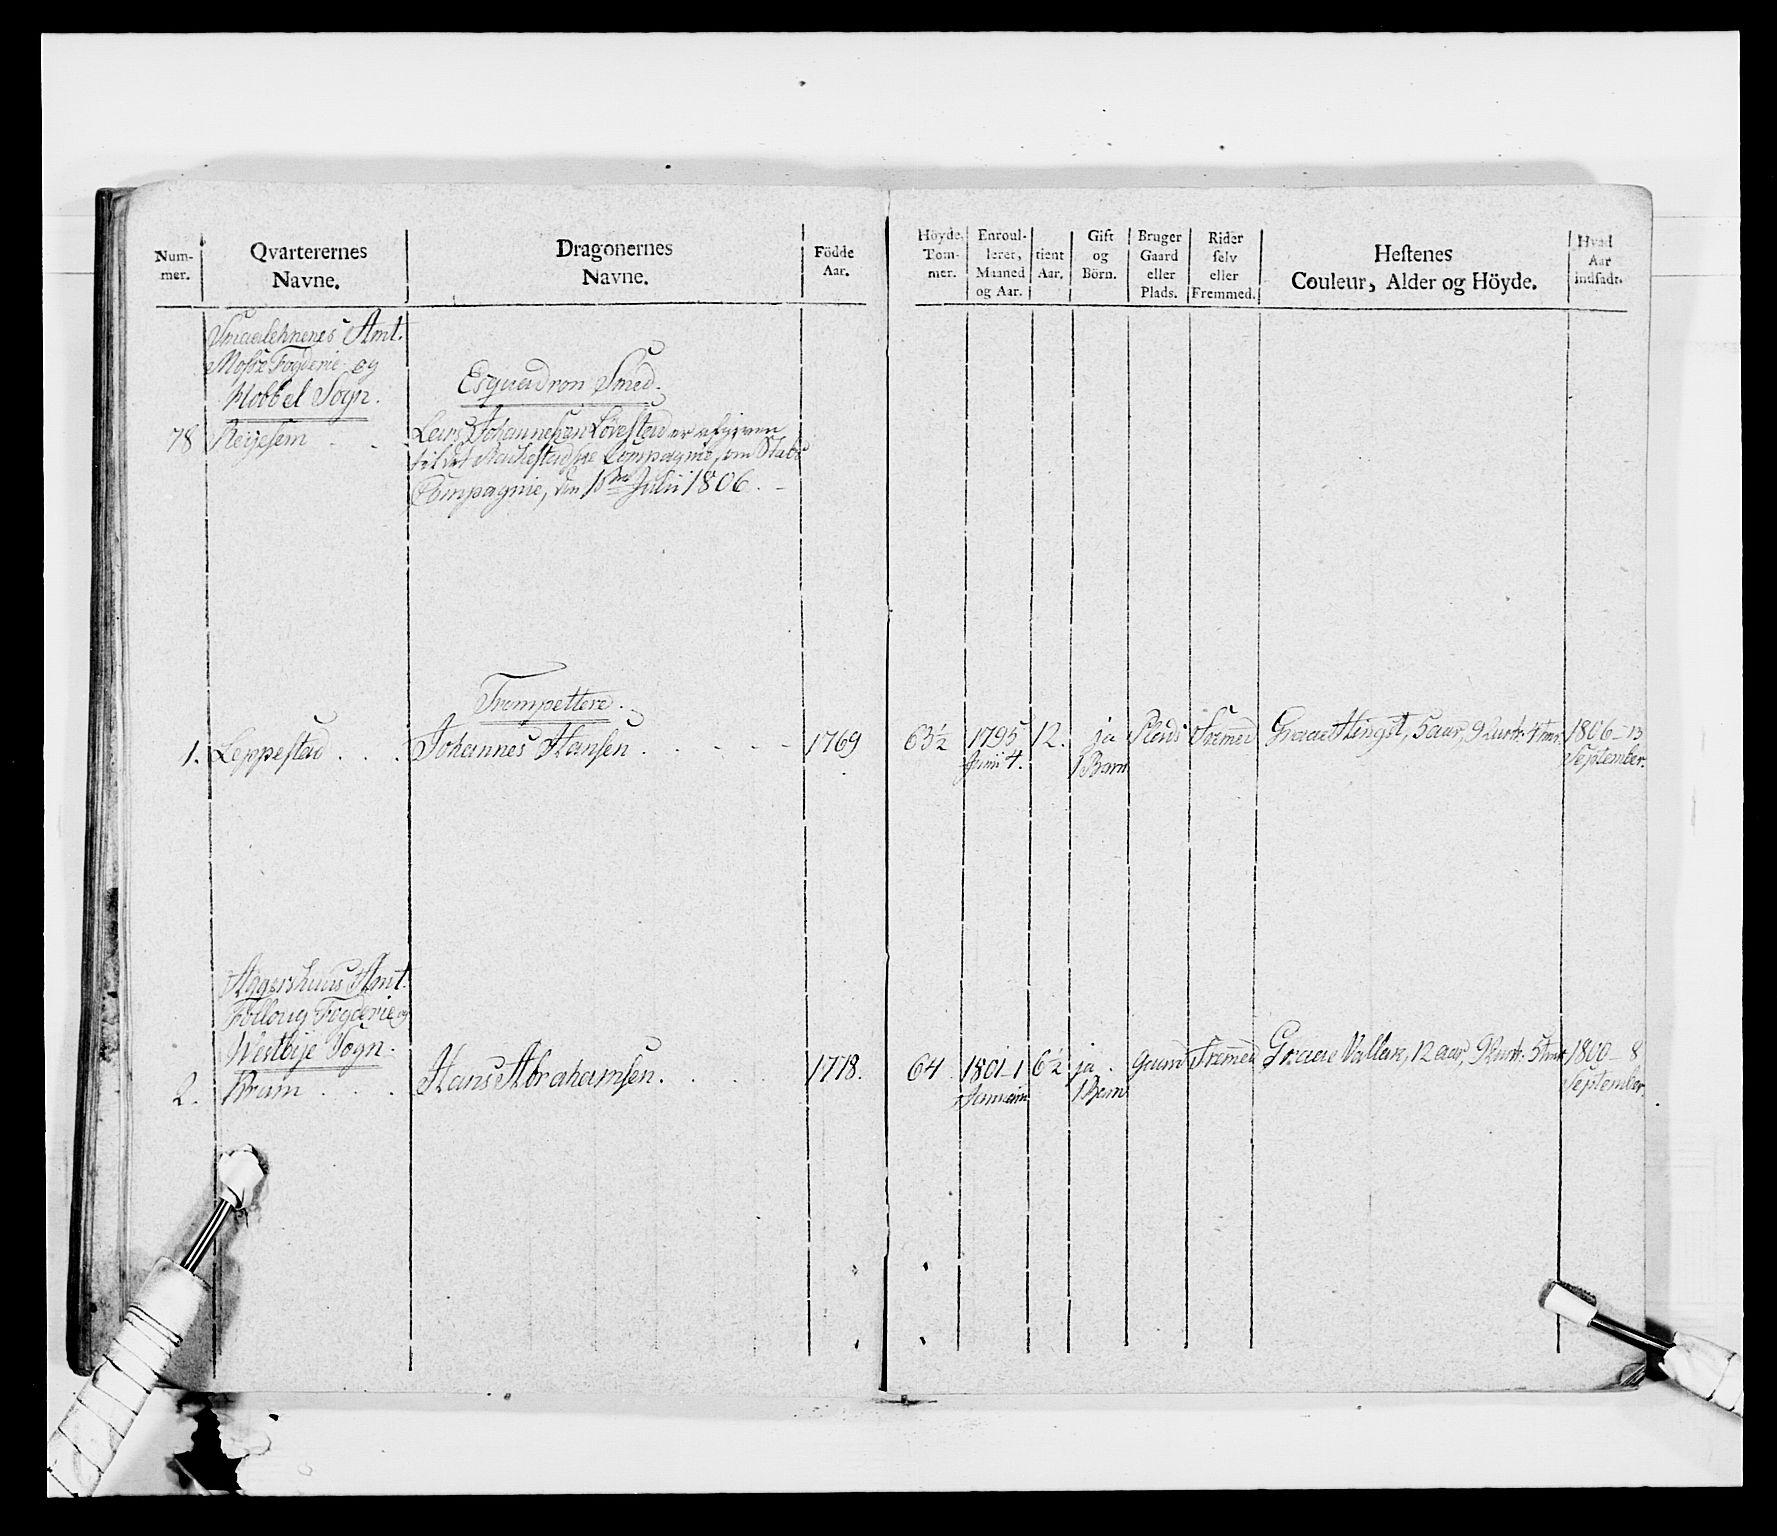 Num-
mer.
Qvarterernes
Navne.
Dragonernes
Navne.
Födde
Aar.
Höyde,
Tom-
mer.
Enroul-
leret,
Maaned
og Aar.
tient
Aar.
Gift
og
Börn.
Bruger
Gaard
eller
Plads.
Rider
selv
eller
Fremmed.
Hestenes
Couleur, Alder og Höyde.
Hvad
Aar
indsadt.
Smaalehnenes Amt.
Moss Fogderie og
Hobbel Sogn.
Esquadron Smed.
78 Reijesem . . Lars Johannesen Lövestad er afgiven
til det Compagnie, som Stabs
Compagnie, den Julii 1806. -
Trompettere.
1. Leppestad . . . Johannes Hansen . . . . - 1769 63½ 1795 12. ja Plads Fremed Graae Hingst, 5 aar, 9 Quart: 4 tm: 1806 - 13
Junii 4. 1 Barn September.
Aggershuus Amt.
Folloug Fogderie og
Westbye Sogn.
2. Kram . . . Hans Abrahamsen . . . . 1778. 64 1801 - 1 6½ ja . Gaard Fremed Graae Vallak, 12 aar, 9 Quart: 5 tm: 1800 - 8
Januarii 1 Barn September.